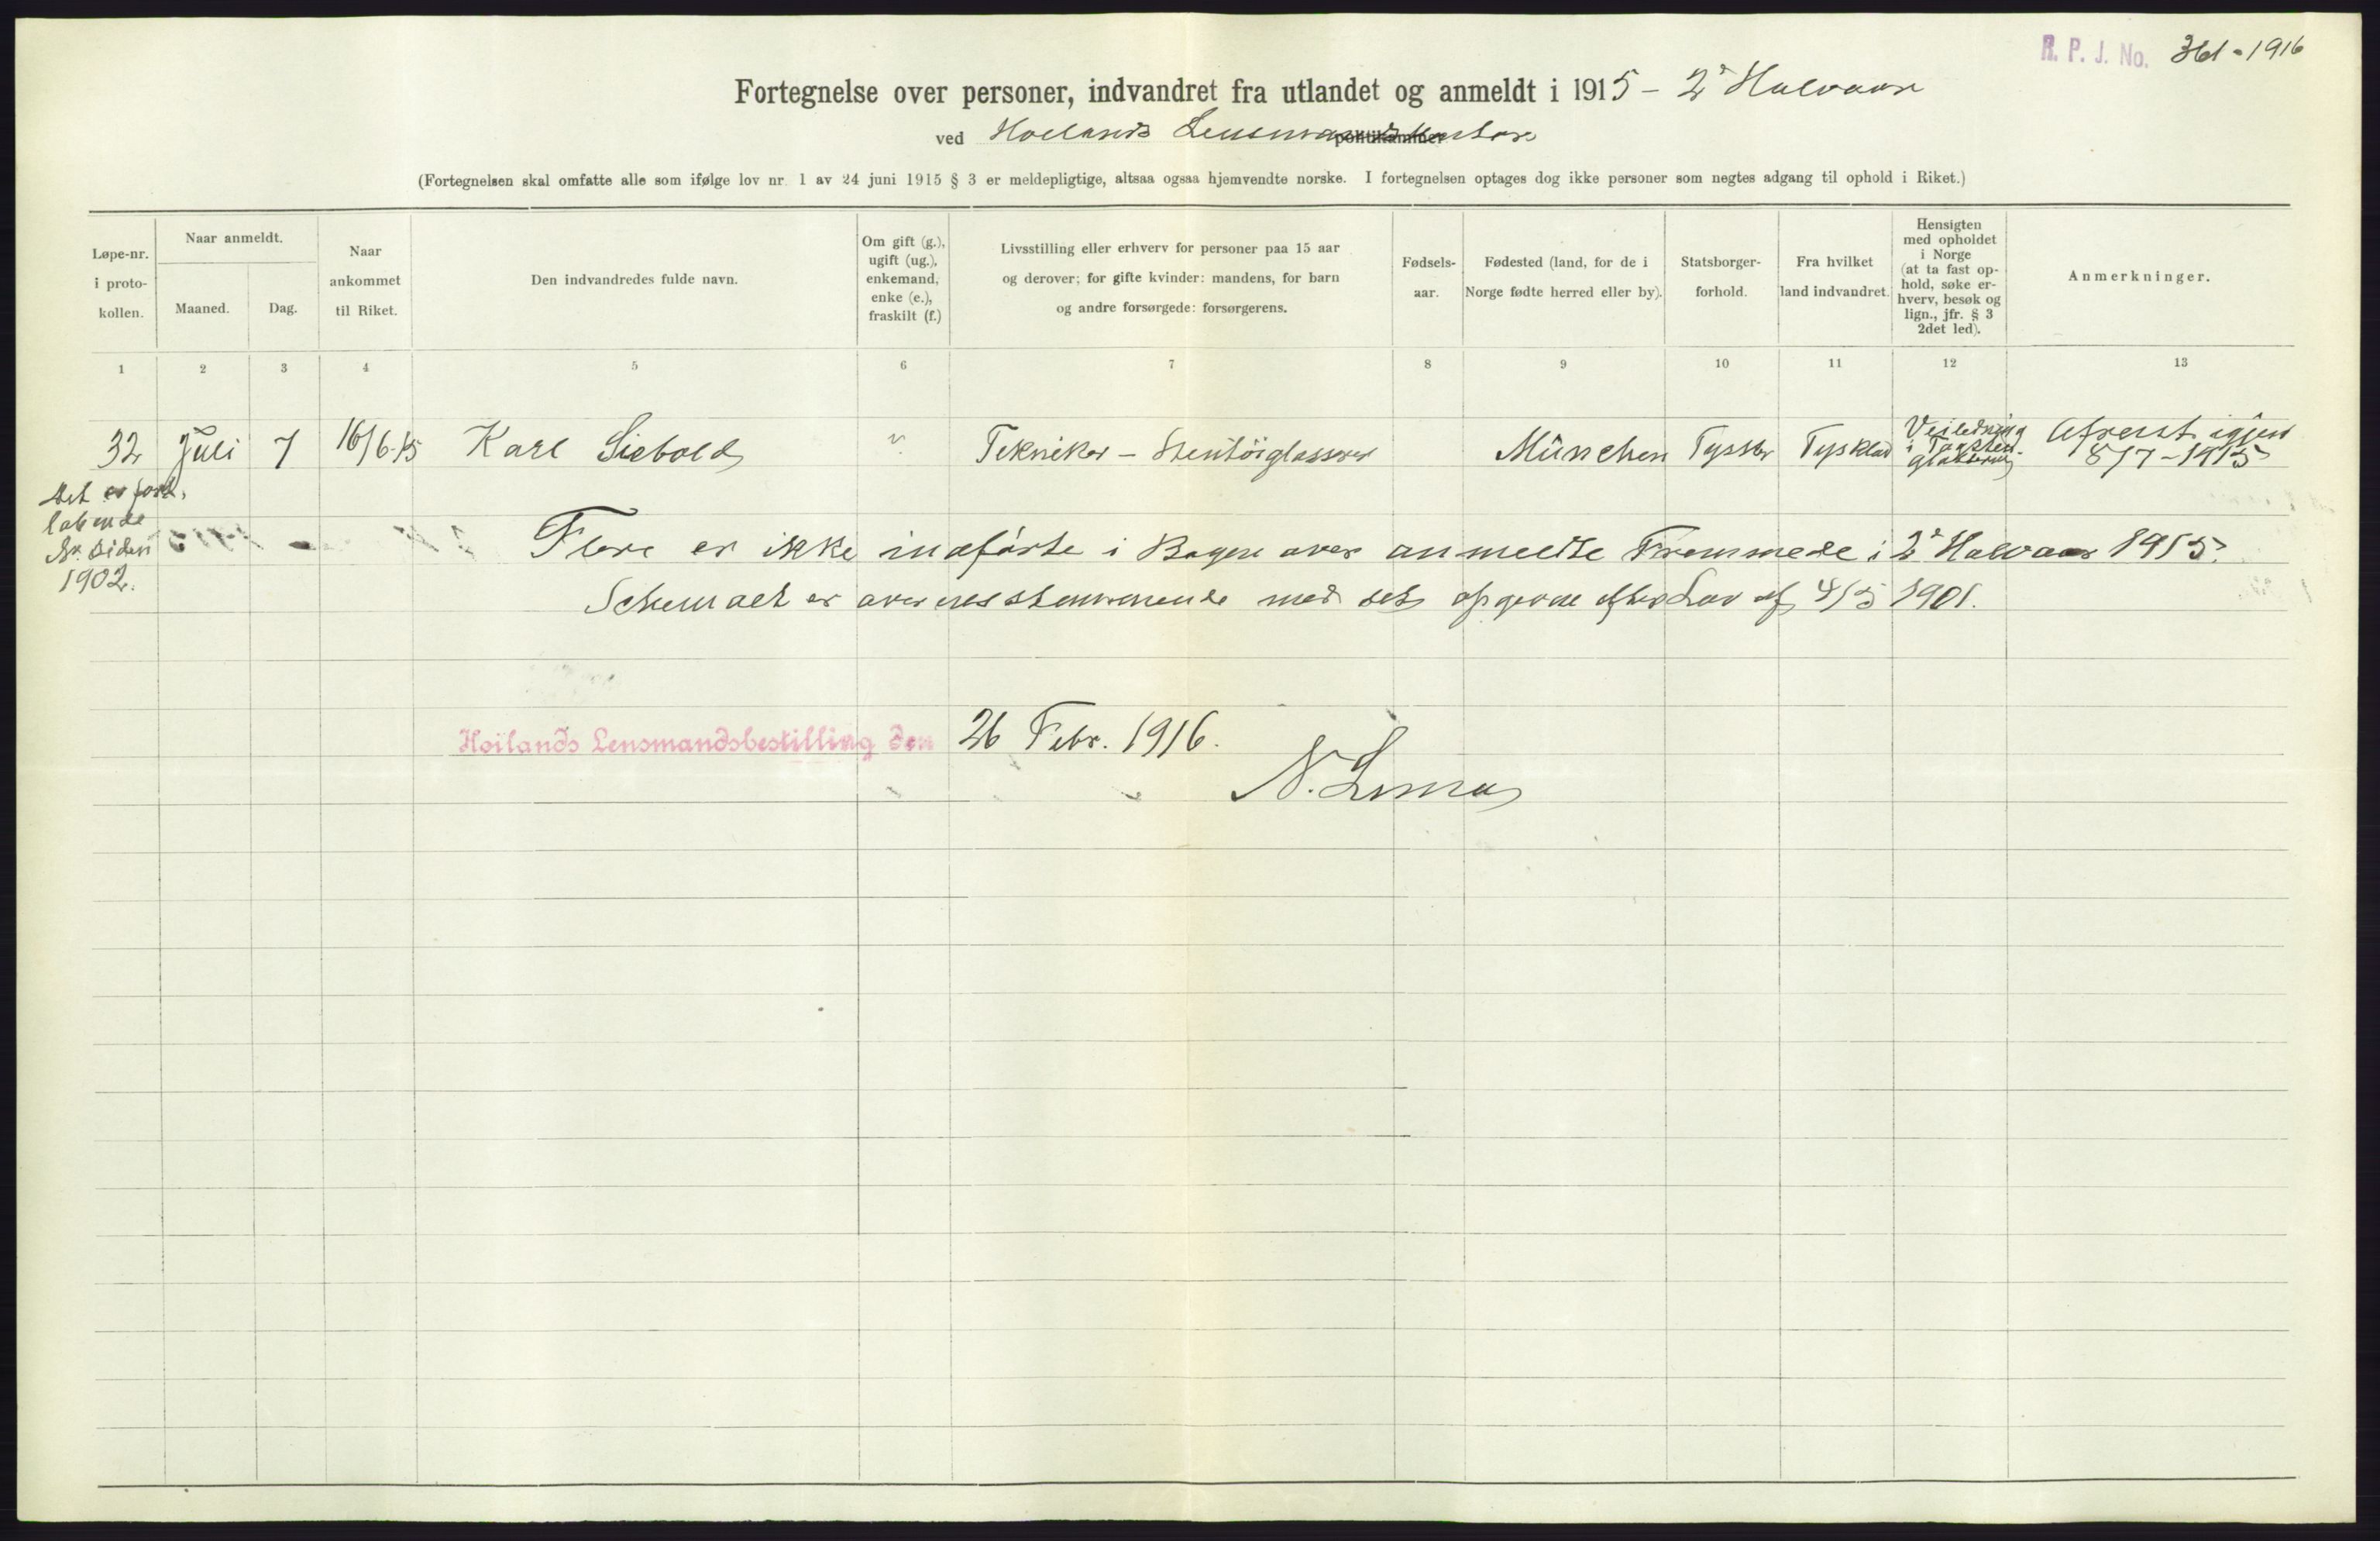 R. P. J. No. 361-1916
Fortegnelse over personer, indvandret fra utlandet og anmeldt i 1915 - 2' Halvaar
ved Hoilands Lensmandskontor politikammer
(Fortegnelsen skal omfatte alle som ifølge lov nr. 1 av 24 juni 1915 § 3 er meldepligtige, altsaa ogsaa hjemvendte norske. I fortegnelsen optages dog ikke personer som negtes adgang til ophold i Riket.)
Løpe-nr.
i proto-
kollen.
Naar anmeldt.
Maaned.
Dag.
Naar
ankommet
til Riket.
Den indvandredes fulde navn.
Om gift (g.),
ugift (ug.),
enkemand,
enke (e.),
fraskilt (f.)
Livsstilling eller erhverv for personer paa 15 aar
og derover; for gifte kvinder: mandens, for barn
og andre forsørgede: forsørgerens.
Fødsels-
aar.
Fødested (land, for de i
Norge fødte herred eller by).
Statsborger-
forhold.
Fra hvilket
land indvandret.
Hensigten
med opholdet
i Norge
(at ta fast op-
hold, søke er-
hverv, besøk og
lign., jfr. § 3
2det led).
Anmerkninger.
1 2 3 4 5 6 7 8 9 10 11 12 13
32 Juli 7 16/6.15 Karl Siebold ? Tekniker - Stentöiglasserer München Tysker Tyskland
Veiledning
i Tagsten-
glasering
Afreist igjen
8/7-1915
Det er fort-
løbende
Nr. siden
1902.
Flere er ikke indførte i Bogen over anmeldte Fremmede i 2' Halvaar 1915.
Schemaet er overensstemmende med det opgivne efter Lov af 4/5 1901.
Hoilands Lensmandsbestilling den 26 Febr. 1916.